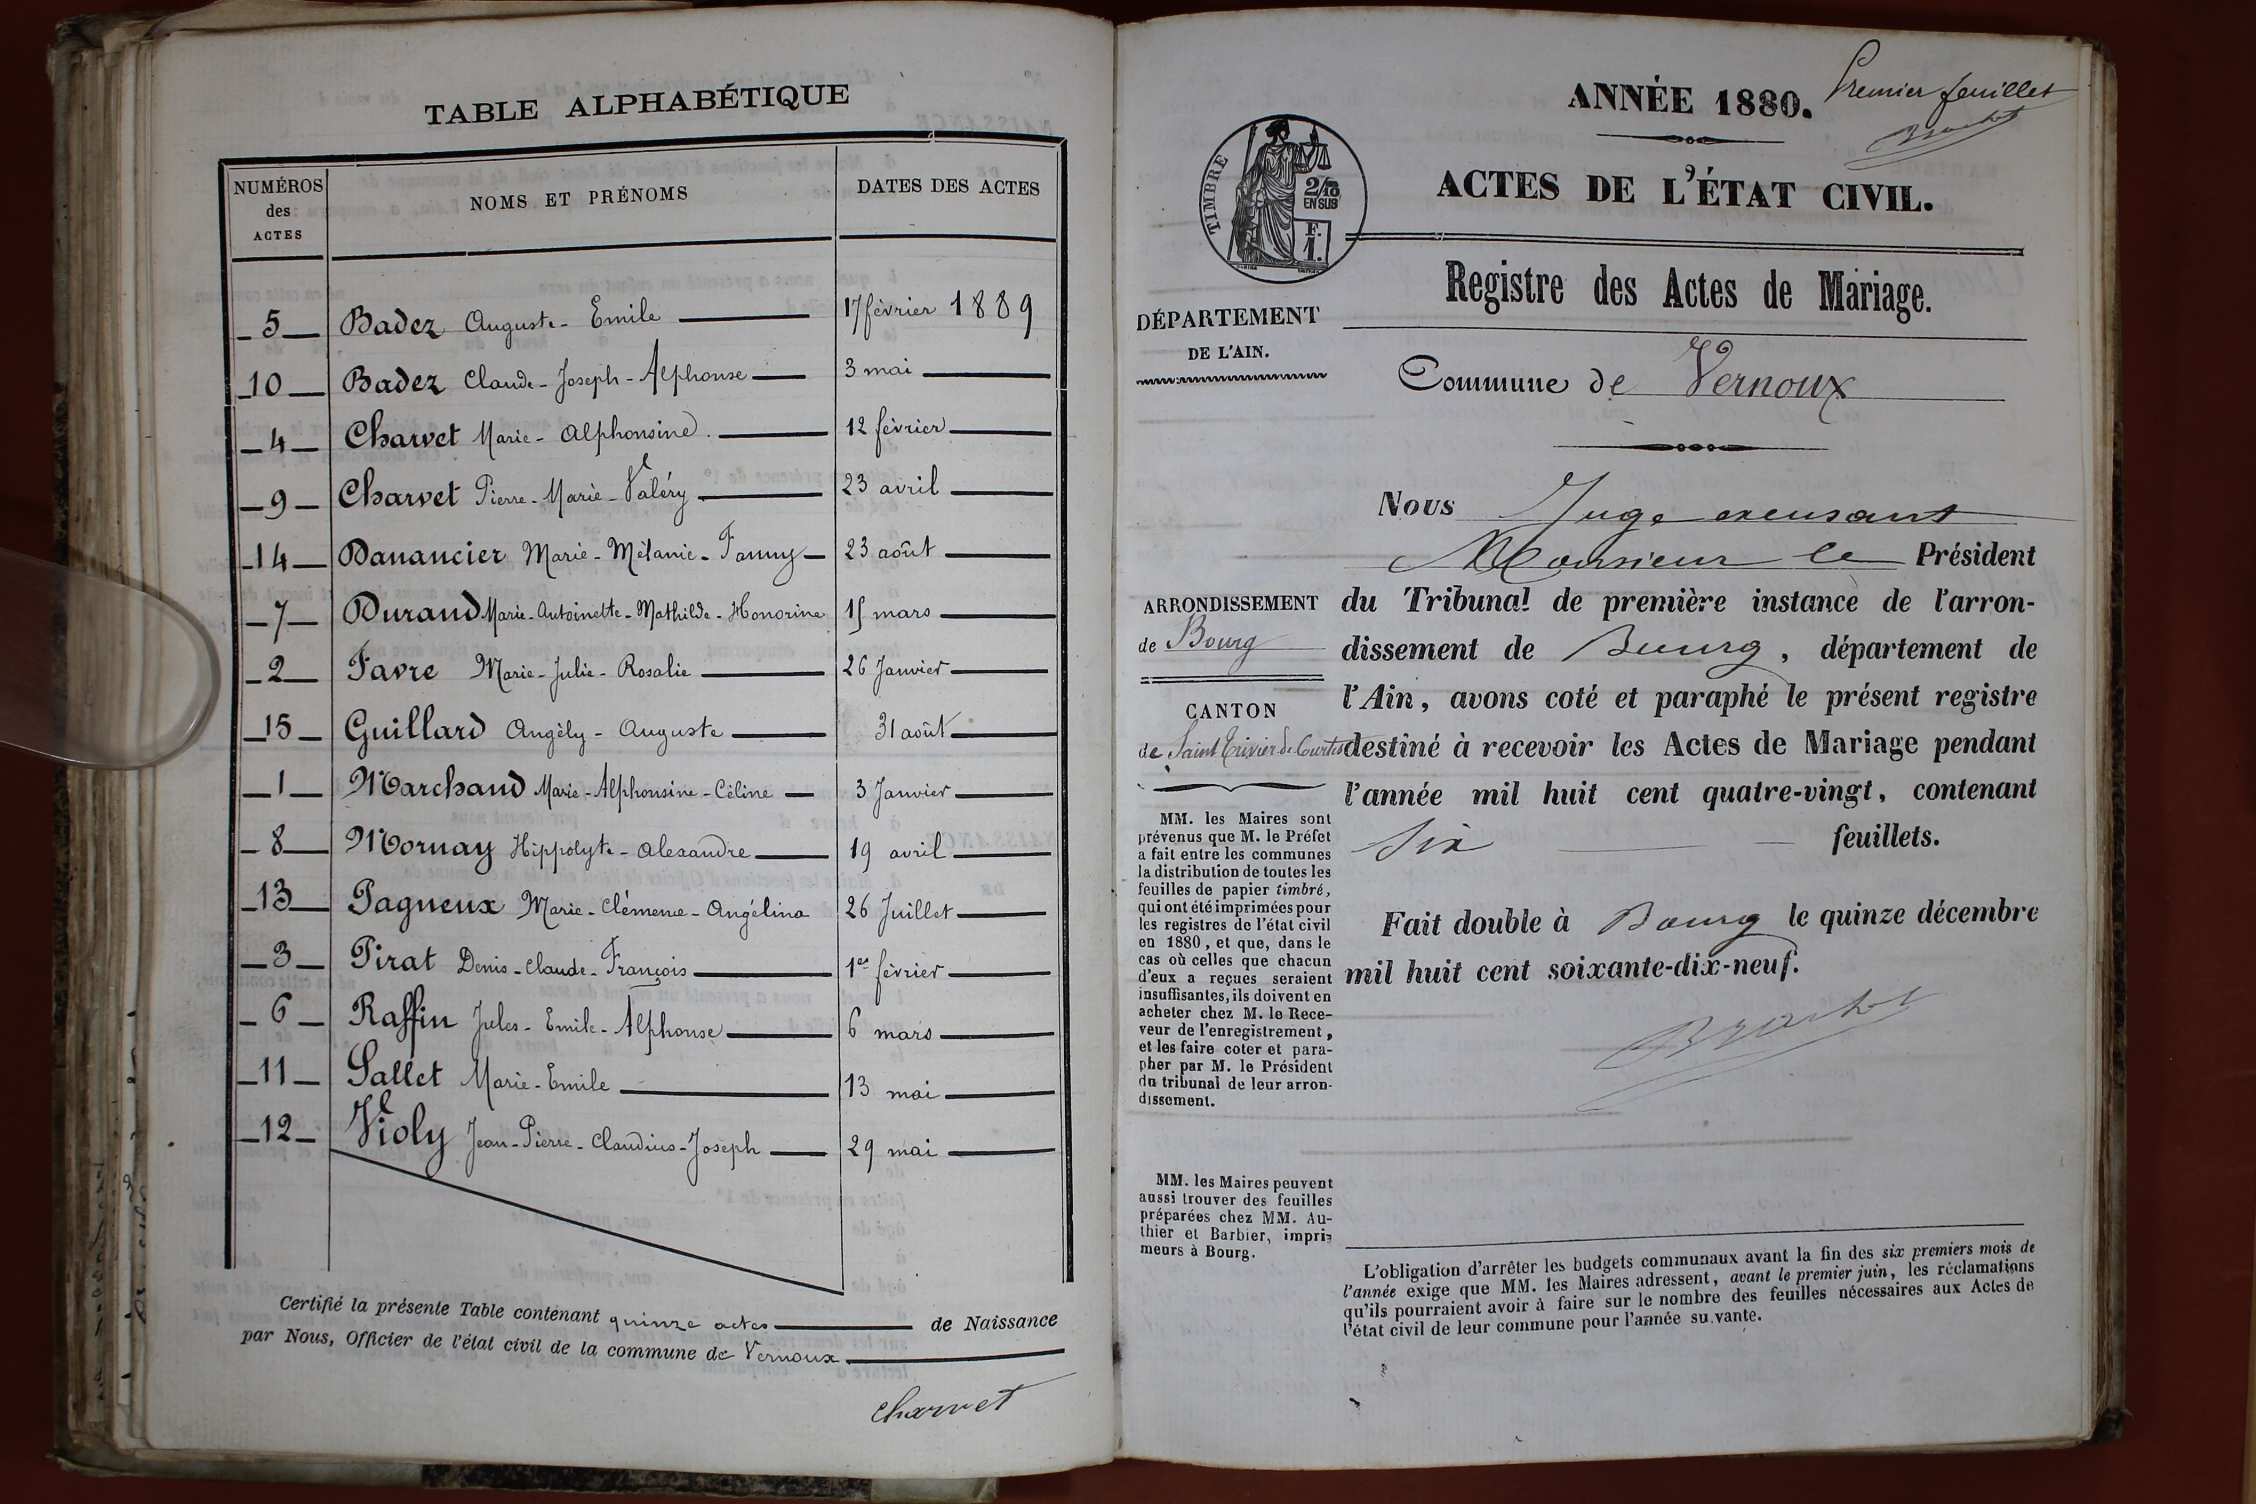 TABLE ALPHABÉTIQUE
NUMÉROS des ACTES
NOMS ET PRÉNOMS
DATES DES ACTES
5 Badez Auguste-Emile 17 février 1889
10 Badez Claude-Joseph-Alphonse 3 mai
4 Charvet Marie-Alphonsine. 12 février
9 Charvet Pierre-Marie-Valéry 23 avril
14 Danancier Marie-Mélanie-Fanny 23 août
7 Durand Marie-Antoinette-Mathilde-Honorine 15 mars
2 Favre Marie-Julie-Rosalie 26 Janvier
15 Guillard Angély-Auguste 31 août
1 Marchand Marie-Alphonsine-Céline 3 Janvier
8 Mornay Hippolyte-Alexandre 19 avril
13 Pagneux Marie-Clémence-Angélina 26 Juillet
3 Pirat Denis-Claude-François 1er février
6 Raffin Jules-Emile-Alphonse 6 mars
11 Sallet Marie-Emile 13 mai
12 Violy Jean-Pierre-Claudius-Joseph 29 mai
Certifié la présente Table contenant quinze actes de Naissance
par Nous, Officier de l'état civil de la commune de Vernoux
Charvet
ANNÉE 1880.
Premier feuillet
ACTES DE L'ÉTAT CIVIL.
TIMBRE
2/10
EN SUS
F.
1.
Registre des Actes de Mariage.
DÉPARTEMENT
DE L'AIN.
Commune de Vernoux
Nous Juge excusant
Monsieur le Président
du Tribunal de première instance de l'arron-
dissement de Bourg, département de
l'Ain, avons coté et paraphé le présent registre
destiné à recevoir les Actes de Mariage pendant
l'année mil huit cent quatre-vingt, contenant
six feuillets.
Fait double à Bourg le quinze décembre
mil huit cent soixante-dix-neuf.
ARRONDISSEMENT
de Bourg
CANTON
de Saint Trivier de Courtes
MM. les Maires sont
prévenus que M. le Préfet
a fait entre les communes
la distribution de toutes les
feuilles de papier timbré,
qui ont été imprimées pour
les registres de l'état civil
en 1880, et que, dans le
cas où celles que chacun
d'eux a reçues seraient
insuffisantes, ils doivent en
acheter chez M. le Rece-
veur de l'enregistrement,
et les faire coter et para-
pher par M. le Président
du tribunal de leur arron-
dissement.
MM. les Maires peuvent
aussi trouver des feuilles
préparées chez MM. Au-
thier et Barbier, impri-
meurs à Bourg.
L'obligation d'arrêter les budgets communaux avant la fin des six premiers mois de
l'année exige que MM. les Maires adressent, avant le premier juin, les réclamations
qu'ils pourraient avoir à faire sur le nombre des feuilles nécessaires aux Actes de
l'état civil de leur commune pour l'année suivante.